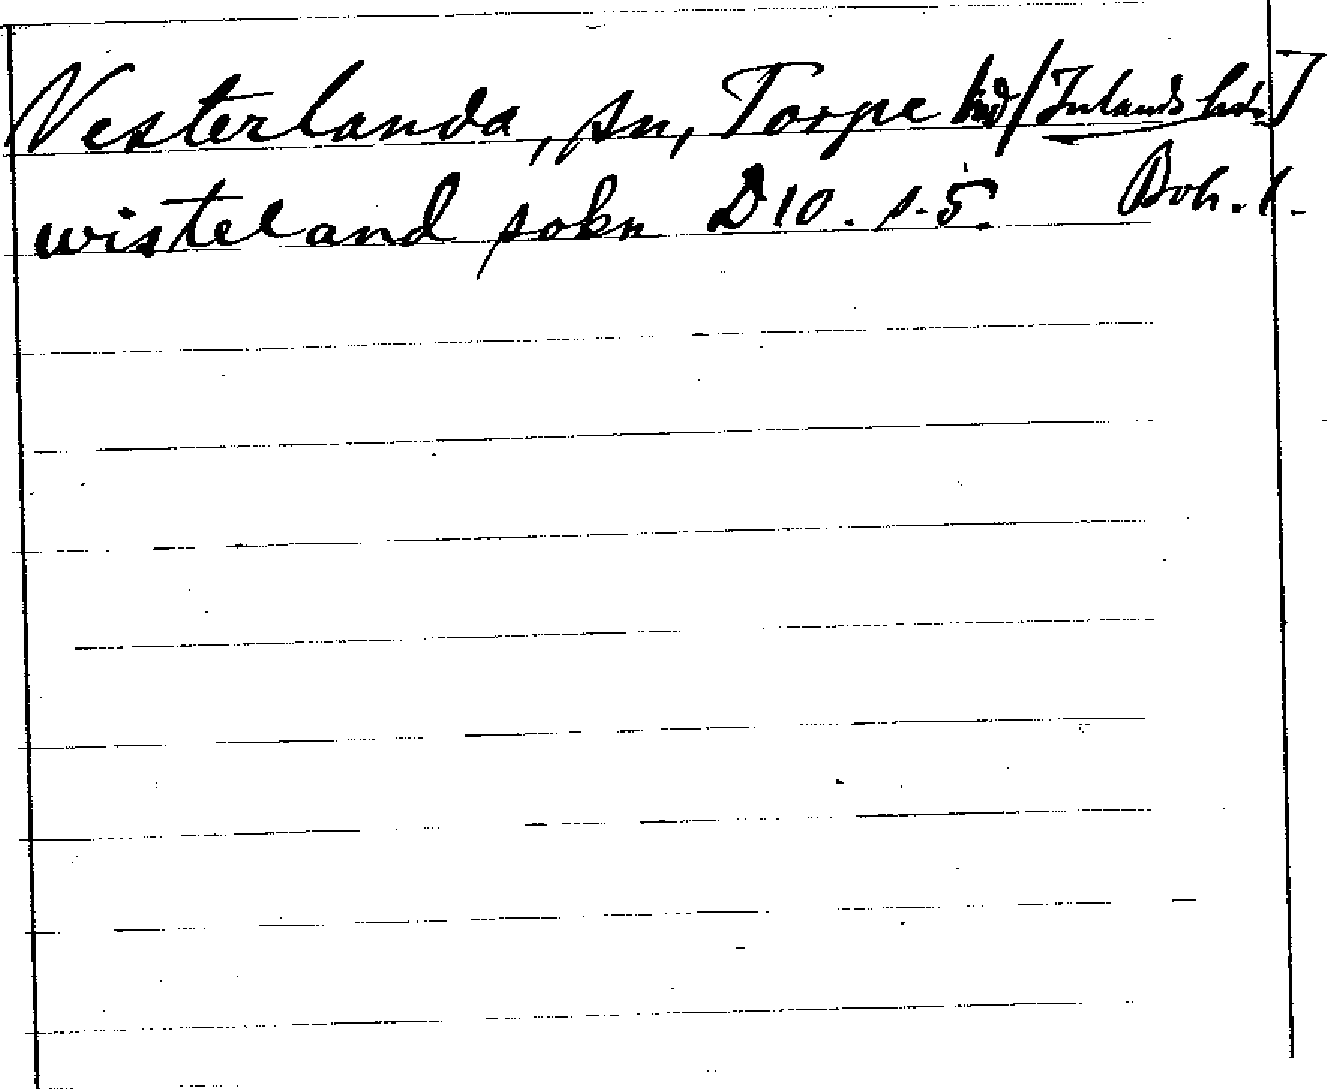 Vesterlanda, sn, Torpe hd [Inlands hd.]
wisteland sokn D10. s. 5. Boh. l.